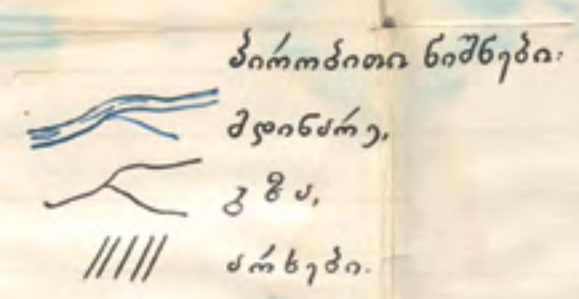 პირობითი ნიშნები:
მდინარე,
გზა,
არხები.